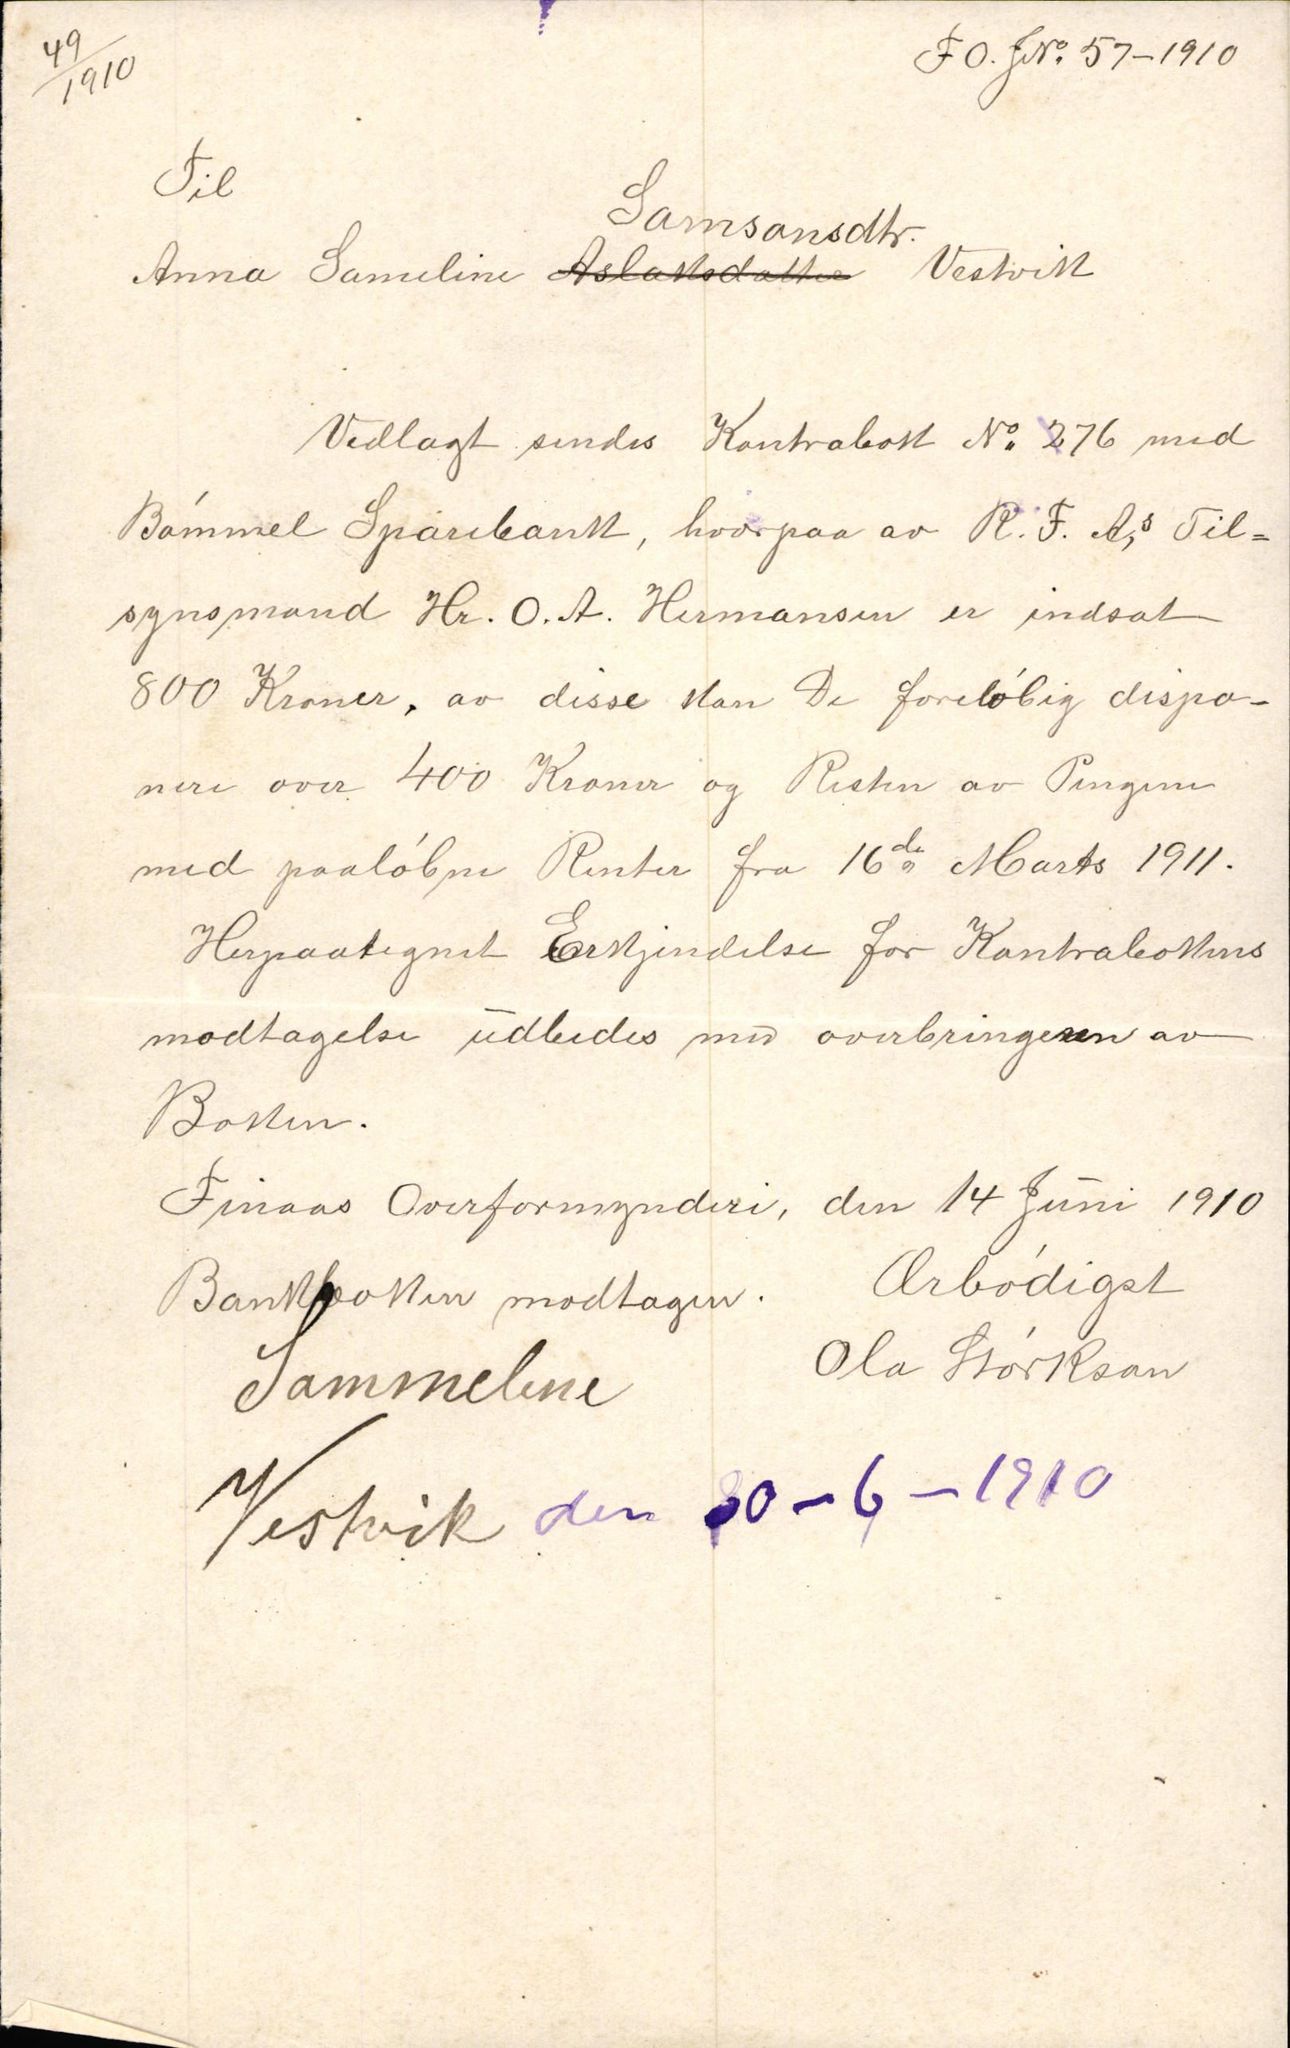 49/1910
F O. JNo. 57-1910
Til
Samsonsdtr.
Anna Sameline Aslaksdatter Vestvik
Vedlagt sendes Kontrabok No. 276 med
Bömmel Sparebank, hvorpaa av R. F. A,s Til=
synsmand Hr. O. A. Hermansen er indsat
800 Kroner, av disse kan De forelöbig dispo-
nere over 400 Kroner og Resten av Pengene
med paalöbne Renter fra 16de Marts 1911.
Herpaategnet Erkjendelse for Kontrabokens
modtagelse udbedes med overbringeren av
Boken.
Finaas Overformynderi, den 14 Juni 1910
Bankboken modtagen.
Ærbödigst
Sammeline
Ola Störkson
Vestvik den 30-6-1910